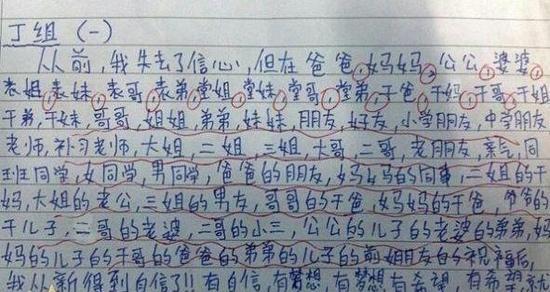 丁组 (一)
从前,我失去了信心,但在爸爸,妈妈,公公,婆婆,
表姐,表妹,表哥,表弟,堂姐,堂妹,堂哥,堂弟,干爸,干妈,干哥,干姐
干弟,干妹,哥哥,姐姐,弟弟,妹妹,朋友,好友,小学朋友,中学朋友
老师,补习老师,大姐,二姐,三姐,大哥,二哥,老朋友,亲戚,同
班同学,女同学,男同学,爸爸的朋友,妈妈的同事,二姐的干
妈,大姐的老公,三姐的男友,哥哥的干爸,妈妈的干爸,爷爷的
干儿子,二哥的老婆,二哥的小三,公公的儿子的老婆的弟弟,妈
妈的儿子的干哥的爸爸的弟弟的儿子的前姐友的祝福后,
我从新得到自信了!!有自信,有梦想,有梦想有希望,有希望就